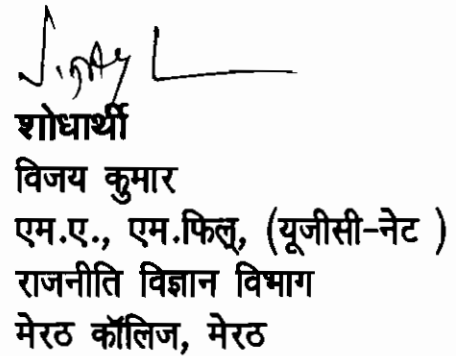 शोधार्थी
विजय कुमार
एम.ए., एम.फिल्, (यूजीसी-नेट )
राजनीति विज्ञान विभाग
मेरठ कॉलिज, मेरठ